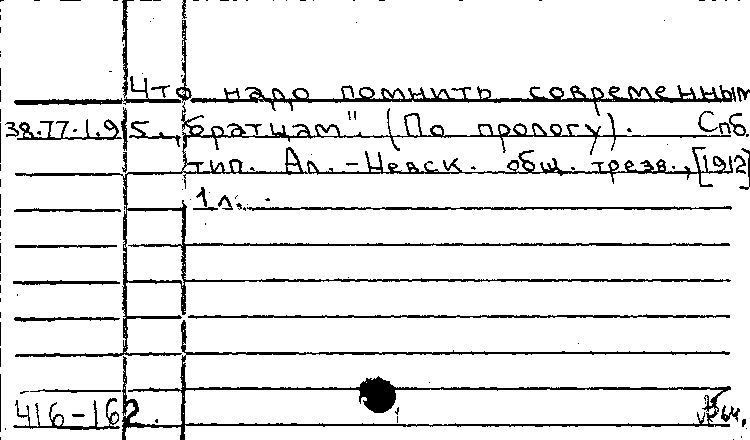 Что надо помнить современным
38.77.1.95. „братцам". (По прологу). Спб.
тип. Ал.-Невск. общ. трезв., [1912]
1 л.
416-162.